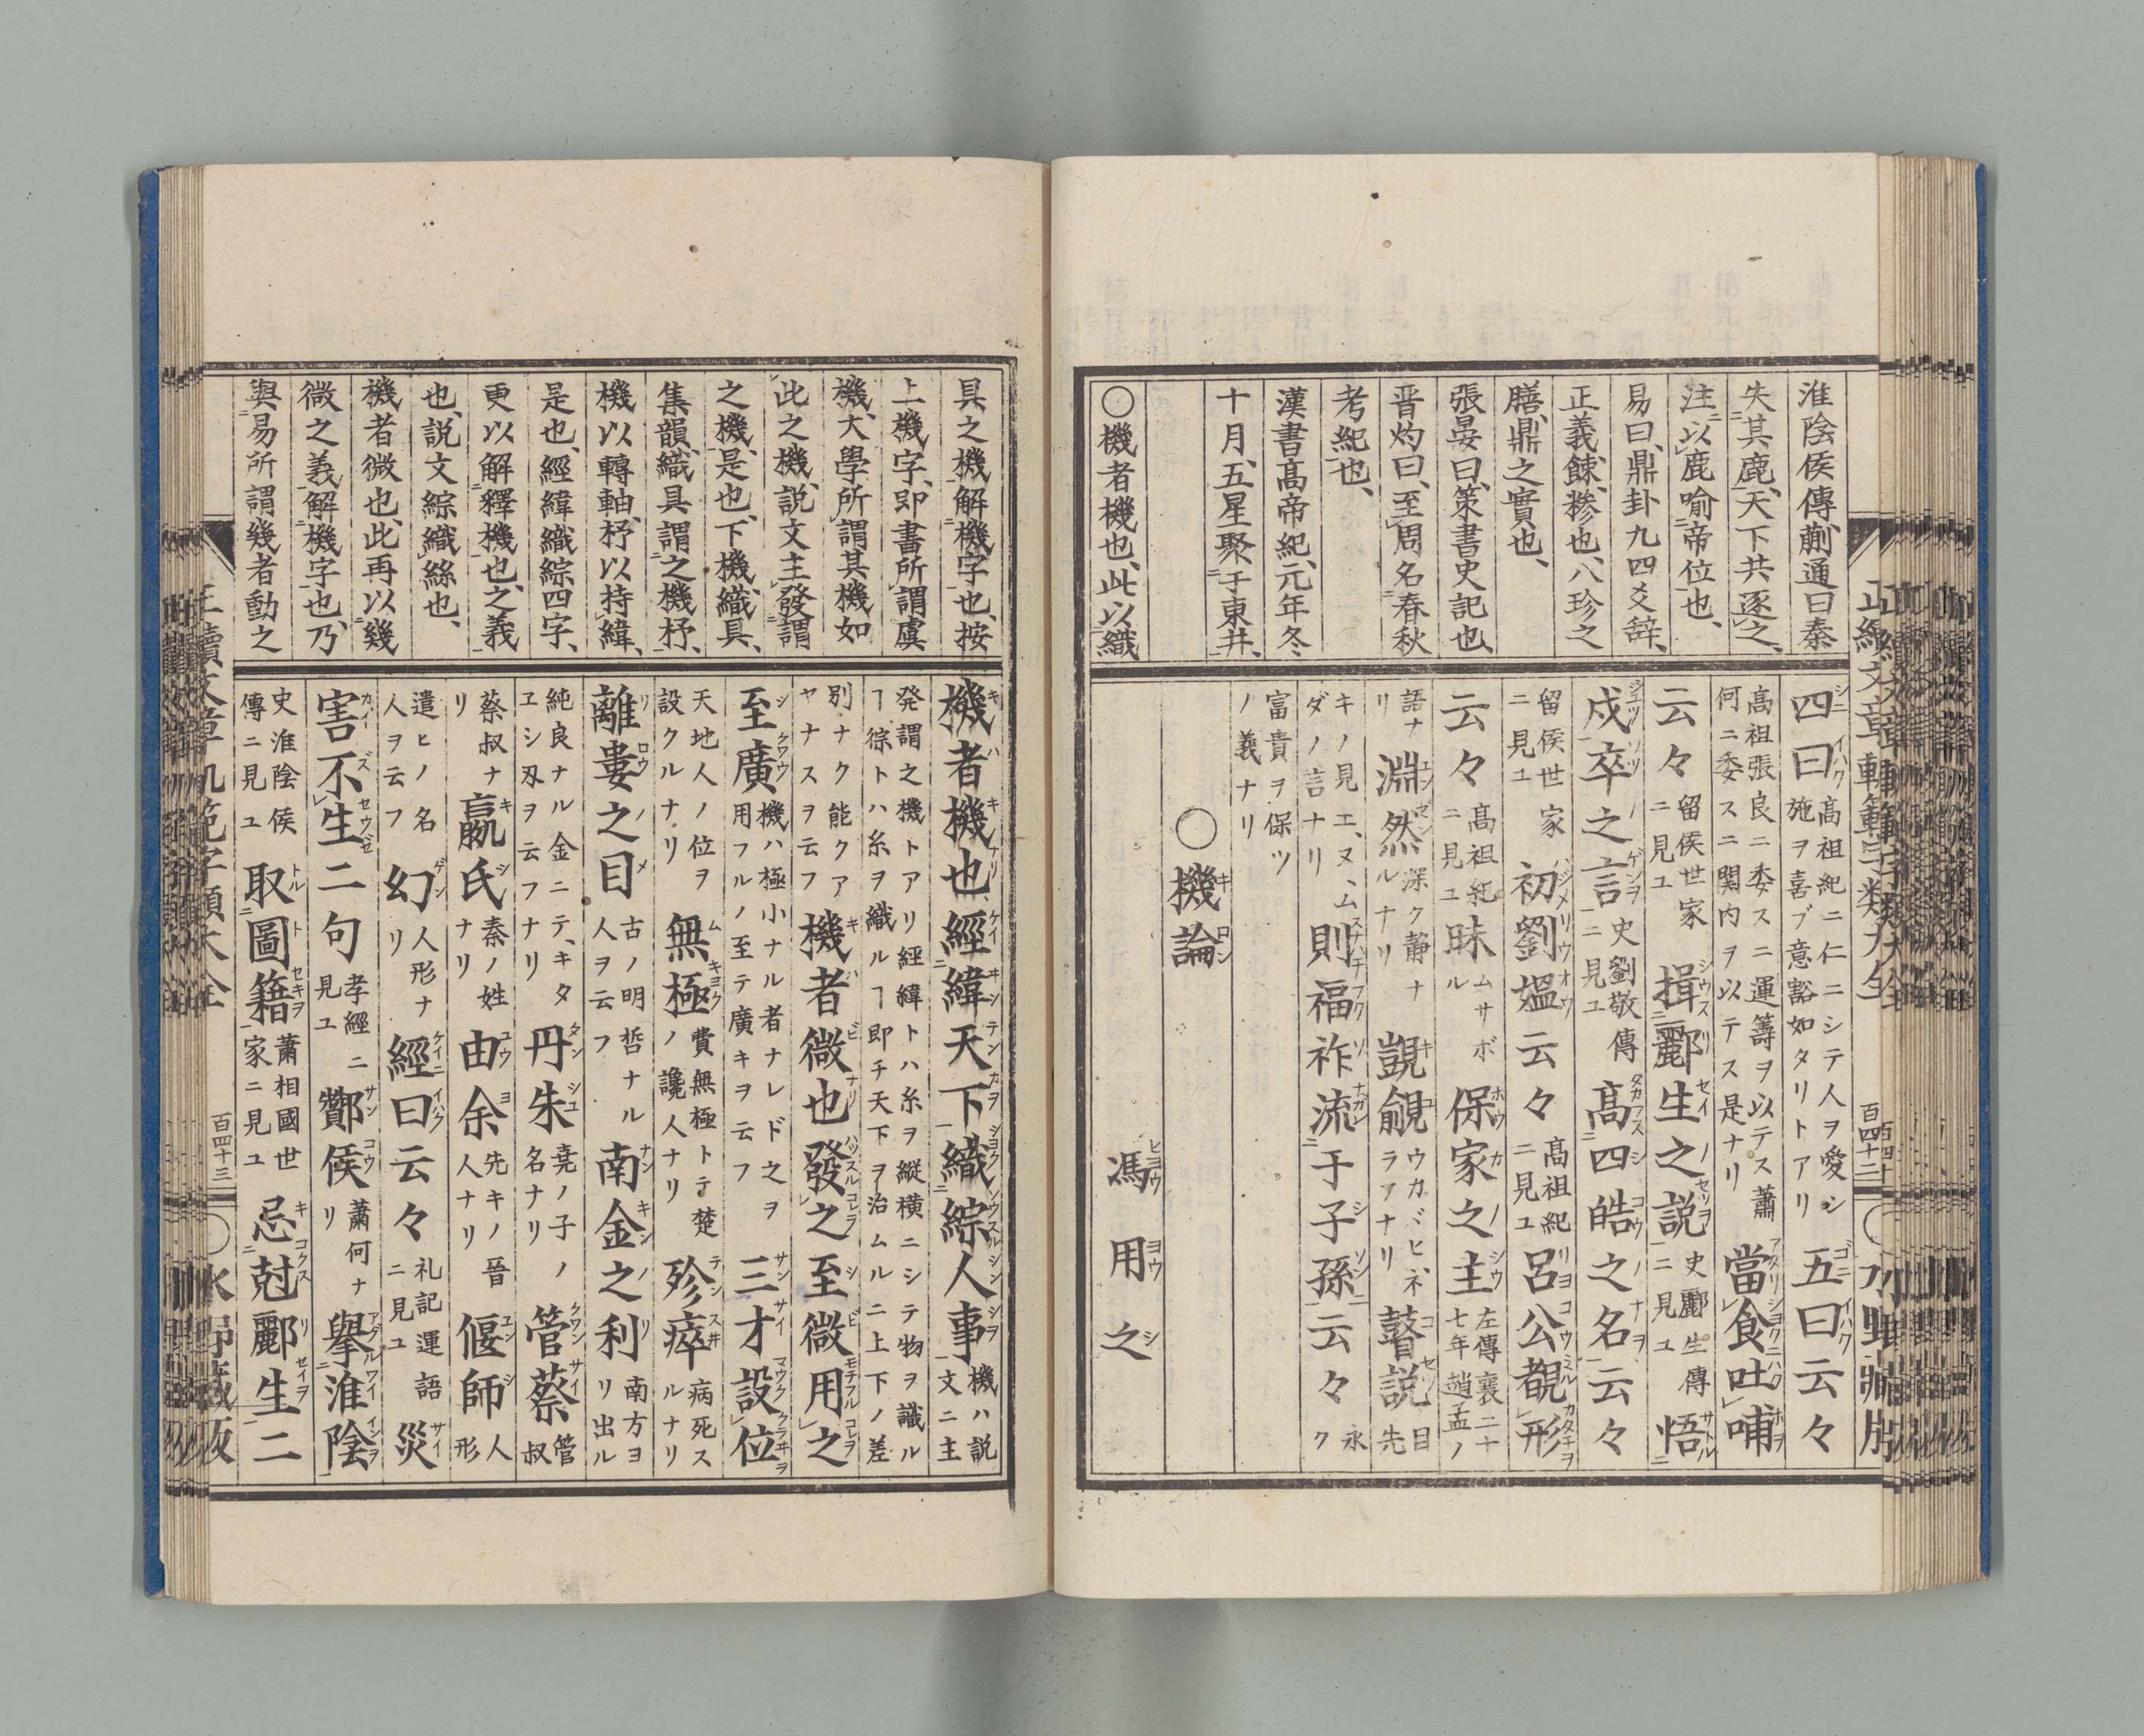 淮陰侯傳、蒯通曰秦
失其鹿、天下共逐之、
注、以鹿喻帝位也、
易曰、鼎卦九四爻辞、
正義、餗、糝也、八珍之
膳、鼎之實也、
張晏曰、策書史記也、
晋灼曰、至周名春秋
考紀也、
漢書髙帝紀、元年冬、
十月、五星聚于東井、
〇機者機也、此以織
四曰髙祖紀ニ仁ニシテ人ヲ愛シ施ヲ喜ブ意豁如タリトアリ五曰云々
髙祖張良ニ委スニ運籌ヲ以テス蕭何ニ委スニ関内ヲ以テス是ナリ當食吐哺
云々留侯世家ニ見ユ揖酈生之説史酈生傳ニ見ユ悟
戍卒之言史劉敬傳ニ見ユ髙四皓之名云々
留侯世家ニ見ユ初劉媼云々髙祖紀ニ見ユ呂公覩形
云々髙祖紀ニ見ユ昧ムサボル保家之主左傳襄二十七年趙孟ノ
語ナリ淵然深ク静ナルナリ覬覦ウカヾヒ、ネラフナリ瞽説目先
キノ見エ、ヌ、ムダノ言ナリ則福祚流于子孫云々永ク
富貴ヲ保ツノ義ナリ
〇機論
馮用之
正續文章軌範字類大全
百四十二
〇水野藏版
具之機、解機字也、按
上機字、即書所謂虞
機、大學所謂其機如
此之機、説文主發謂
之機、是也、下機、織具、
集韻、織具謂之機杼、
機以轉軸、杼以持緯、
是也、經緯織綜四字、
更以解釋機也、之義
也、説文綜織絲也、
機者微也、此再以幾
微之義、解機字也、乃
與易所謂幾者動之
機者機也經緯天下織綜人事機ハ説文ニ主
発謂之機トアリ經緯トハ糸ヲ縱横ニシテ物ヲ識ルヿ綜トハ糸ヲ織ルヿ即チ天下ヲ治ムルニ上下ノ差
別ナク能クアヤナスヲ云フ機者微也發之至微用之
至廣機ハ極小ナル者ナレド之ヲ用フルノ至テ廣キヲ云フ三才設位
天地人ノ位ヲ設クルナリ無極費無極トテ楚ノ讒人ナリ殄瘁病死スルナリ
離婁之目古ノ明哲ナル人ヲ云フ南金之利南方ヨリ出ル
純良ナル金ニテ、キタヱシ刄ヲ云フナリ丹朱堯ノ子ノ名ナリ管蔡管叔
蔡叔ナリ嬴氏秦ノ姓ナリ由余先キノ晉人ナリ偃師人形
遣ヒノ名人ヲ云フ幻人形ナリ經曰云々礼記運語ニ見ユ災
害不生二句孝經ニ見ユ酇侯蕭何ナリ擧淮陰
史淮陰侯傳ニ見ユ取圖籍蕭相國世家ニ見ユ忌尅酈生二
正續文章軌範字類大全
百四十三
〇水野藏版